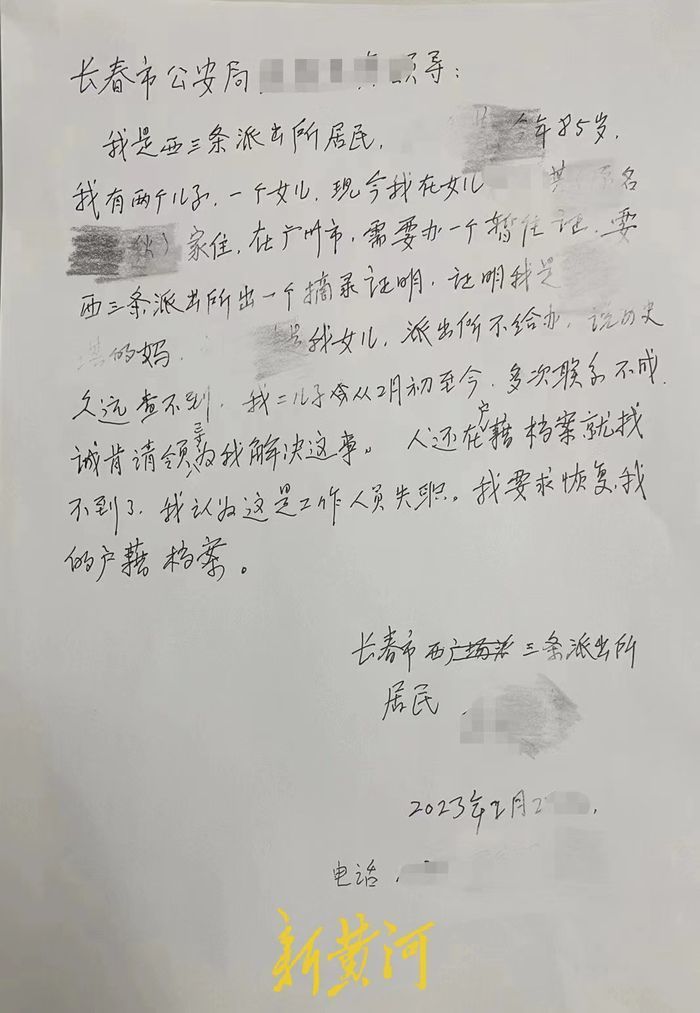 长春市公安局 领导:
我是西三条派出所居民, 今年85岁,
我有两个儿子,一个女儿,现今我在女儿 原名
家住,在广州市,需要办一个暂住证,要
西三条派出所出一个摘录证明,证明我是
的妈, 是我女儿,派出所不给办,说历史
久远查不到,我二儿子从2月初至今,多次联系不成,
诚肯请领导为我解决这事。人还在户籍档案就找
不到了,我认为这是工作人员失职。我要求恢复我
的户籍档案。
长春市西三条派出所
居民
2023年2月2
电话,
新黄河